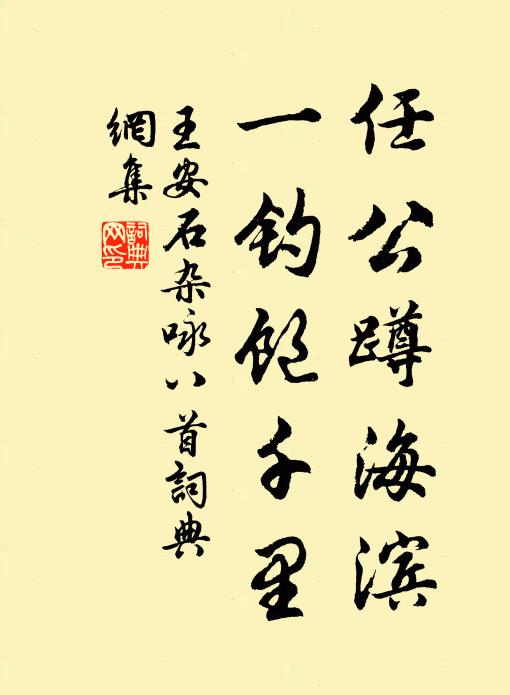 任公蹲海滨
一钓饱千里
王安石杂咏八首詞典
網集
詞典
网印